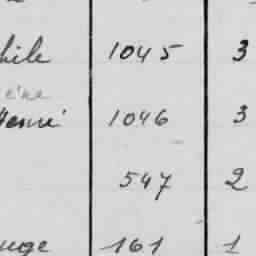 hile 1045 3
Henri 1046 3
547 2
uge 161 1